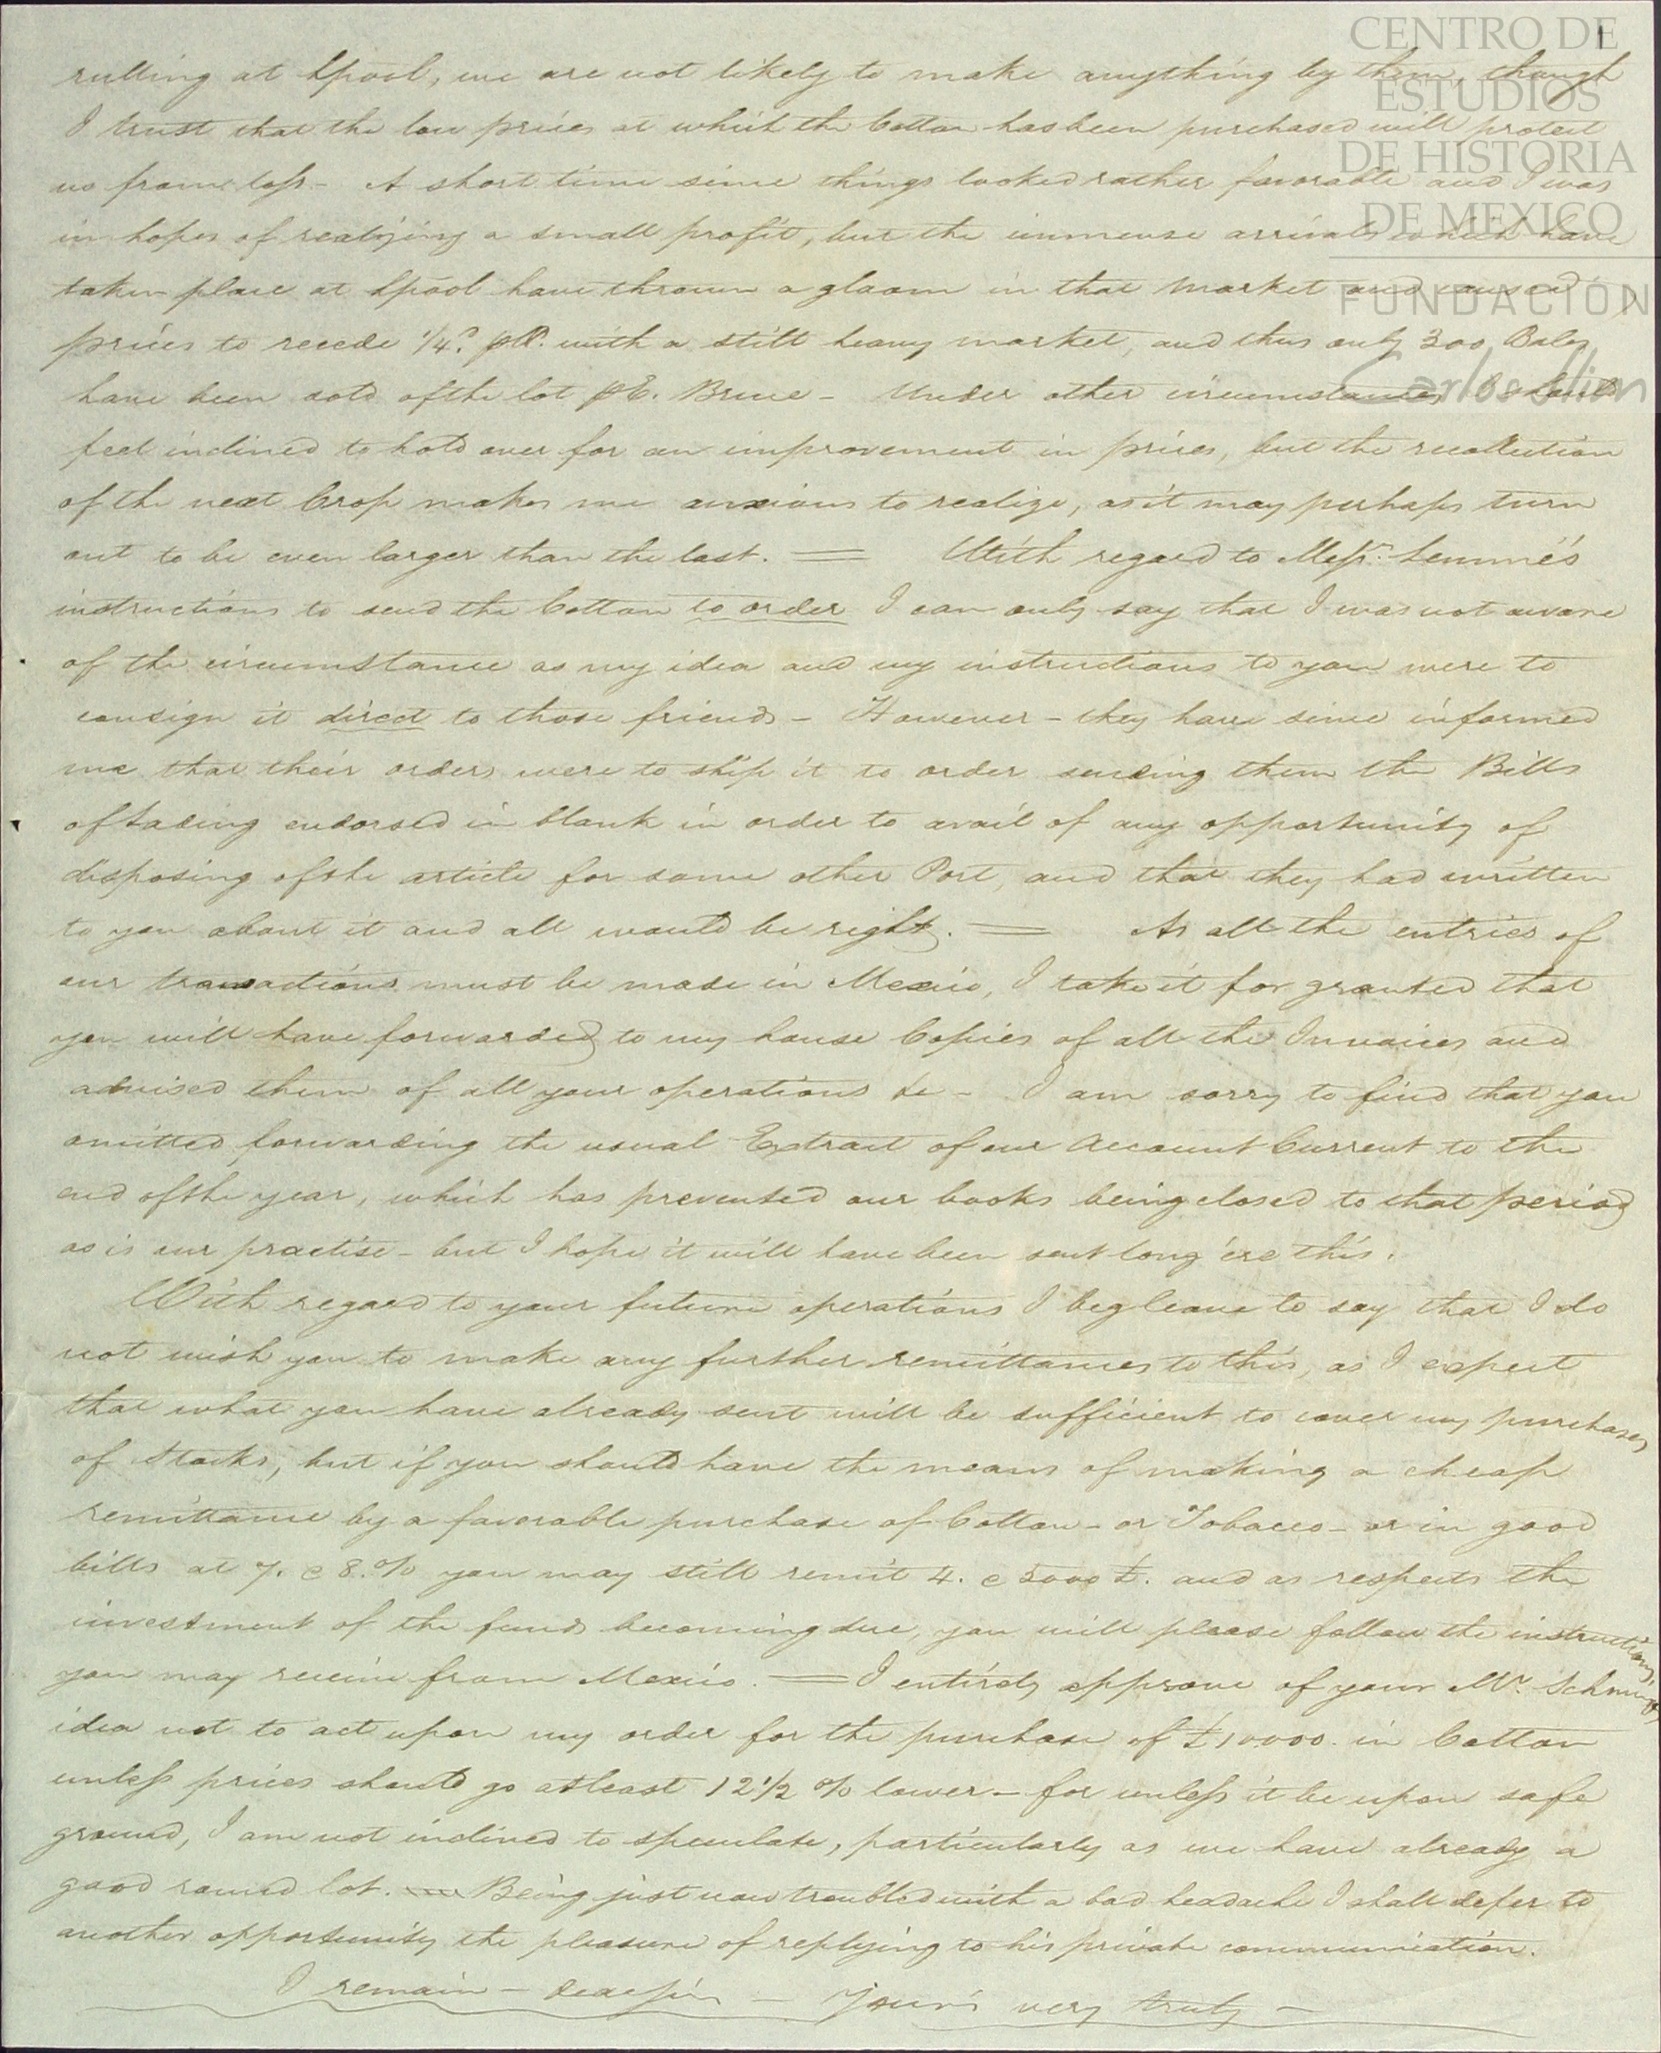 CENTRO DE
ESTUDIOS
DE HISTORIA
DE MEXICO
FUNDACIÓN
Carlos Slim
rulling at Lpool, we are not likely to make anything by them, though
I trust that the low prices at which the Cotton has been purchased will protect
us from loss - A short time since things looked rather favorable and I was
in hopes of realizing a small profit, but the immense arrivals which have
taken place at Lpool have thrown a gloom in that market and caused
prices to recede 1/4.d with a still heavy market, and thus only 300 Bales
have been sold of the lot p E. Bruce - Under other circumstances I should
feel inclined to hold over for an improvement in prices, but the recollection
of the next Crop makes me anxious to realize, as it may perhaps turn
out to be even larger than the last. = With regard to Messrs. Lemmé's
instructions to send the Cotton to order I can only say that I was not aware
of the circumstance as my idea and my instructions to you were to
consign it direct to those friends - However - they have since informed
me that their orders were to ship it to order sending them the Bills
of Lading endorsed in blank in order to avail of any opportunity of
disposing of the article for some other Port, and that they had written
to you about it and all would be right. = As all the entries of
our transactions must be made in Mexico, I take it for granted that
you will have forwarded to my house Copies of all the Invoices and
advised them of all your operations &c - I am sorry to find that you
omitted forwarding the usual Extract of our Account Current to the
end of the year, which has prevented our books being closed to that period
as is our practise - but I hope it will have been sent long 'ere this.
With regard to your future operations I beg leave to say that I do
not wish you to make any further remittances to this, as I expect
that what you have already sent will be sufficient to cover my purchases
of Stocks, but if you should have the means of making a cheap
remittance by a favorable purchase of Cotton - or Tobacco - or in good
bills at 7. @ 8.% you may still remit 4. @ 5000 £. and as respects the
investment of the funds becoming due, you will please follow the instructions
you may receive from Mexico. = I entirely approve of your Mr. Schmidt's
idea not to act upon my order for the purchase of £10000. in Cotton
unless prices should go at least 12 1/2 % lower - for unless it be upon safe
ground, I am not inclined to speculate, particularly as we have already a
good round lot. Being just now troubled with a bad headache I shall defer to
another opportunity the pleasure of replying to his private communication.
I remain - dear Sir - Your's very truly -